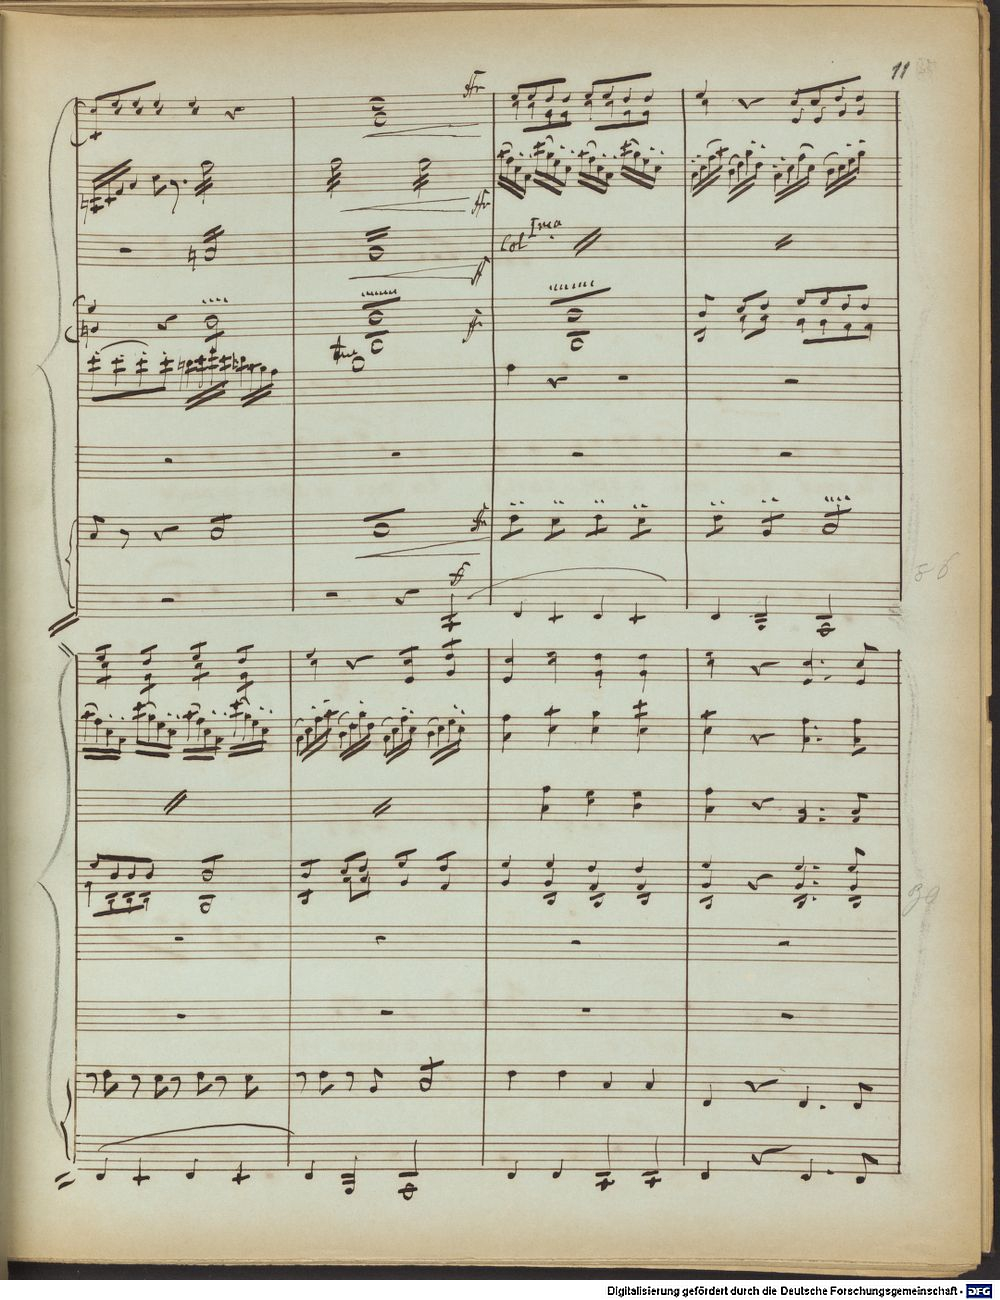 11
ff
ff
Col Ima
ff
ff
tr
ff
ff
56
39
Digitalisierung gefördert durch die Deutsche Forschungsgemeinschaft - DFG